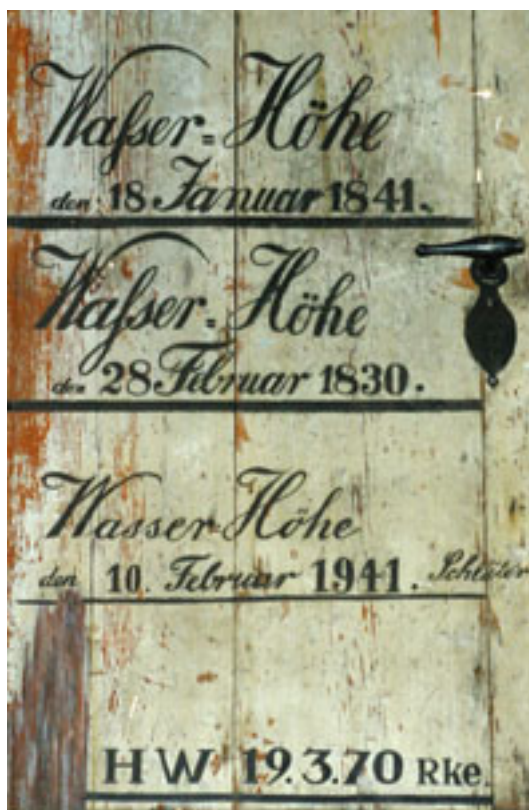 Waſser=Höhe
den 18 Januar 1841.
Waſser=Höhe
den 28 Februar 1830.
Wasser-Höhe
den 10. Februar 1941. Schlüter
HW 19.3.70 Rke.